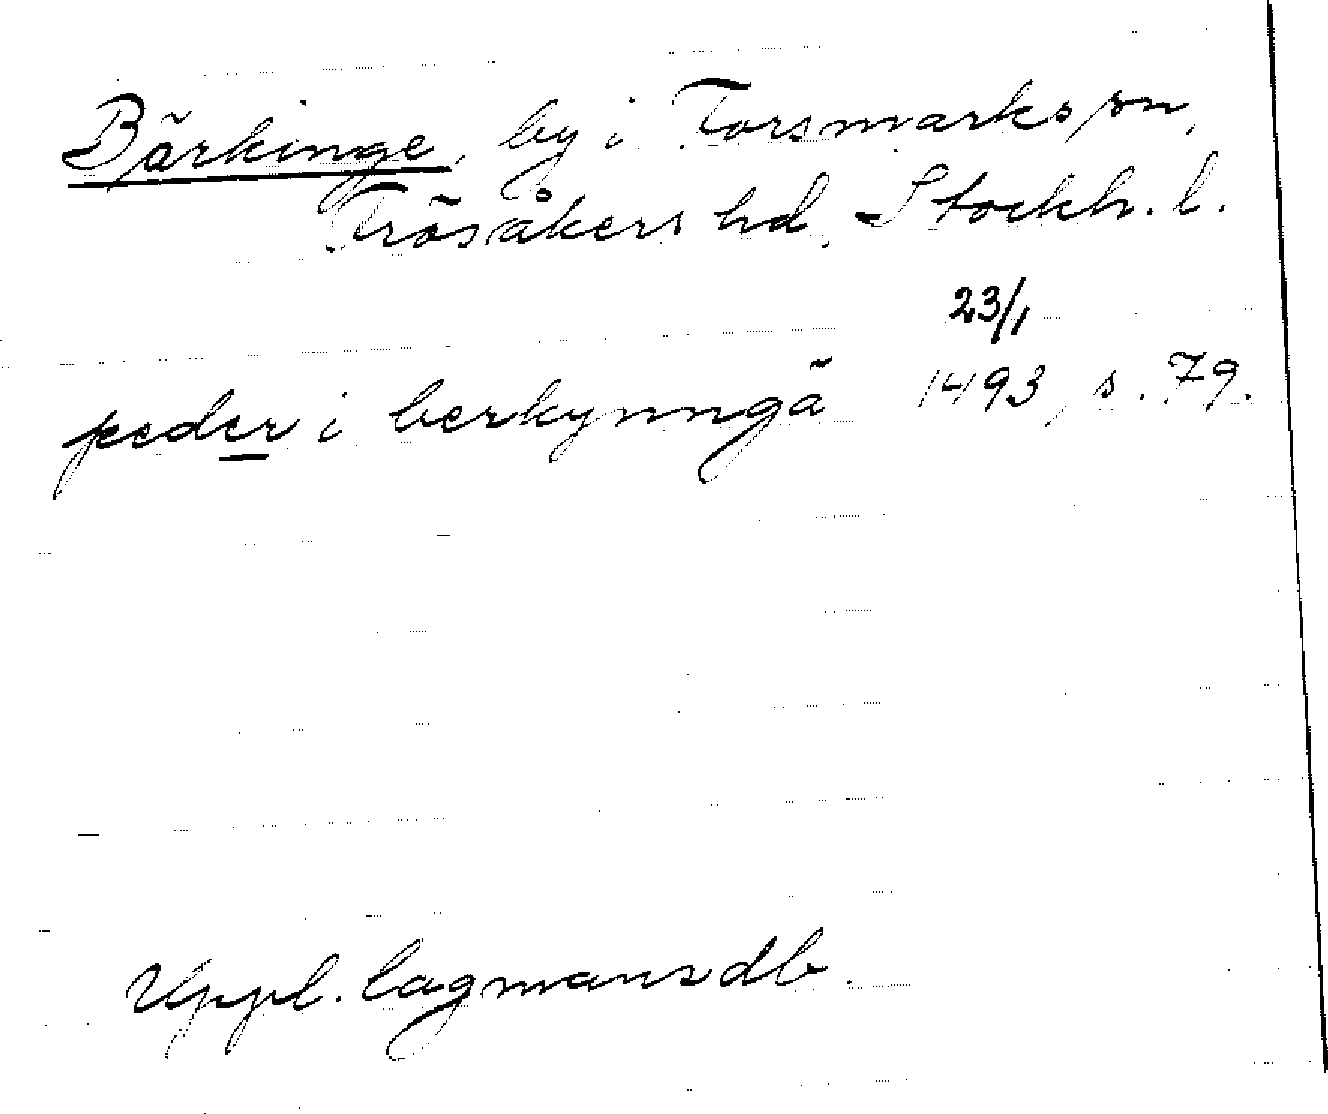 Bärkinge, by i Forsmarks sn,
Frösåkers hd, Stockh. l.
23/1
peder i berkynngä 1493, s. 79.
Uppl. lagmansdb.